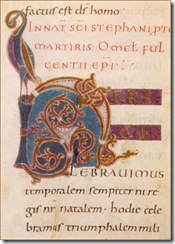 factus est ds homo
INNAT SCI STEPHANI, PTO
MARTIRIS OMET FUL
GENTII EPI
LEBRAVIMUS
temporalem sempiterni re
gis nri natalem hodie cele
bramus triumphalem mili